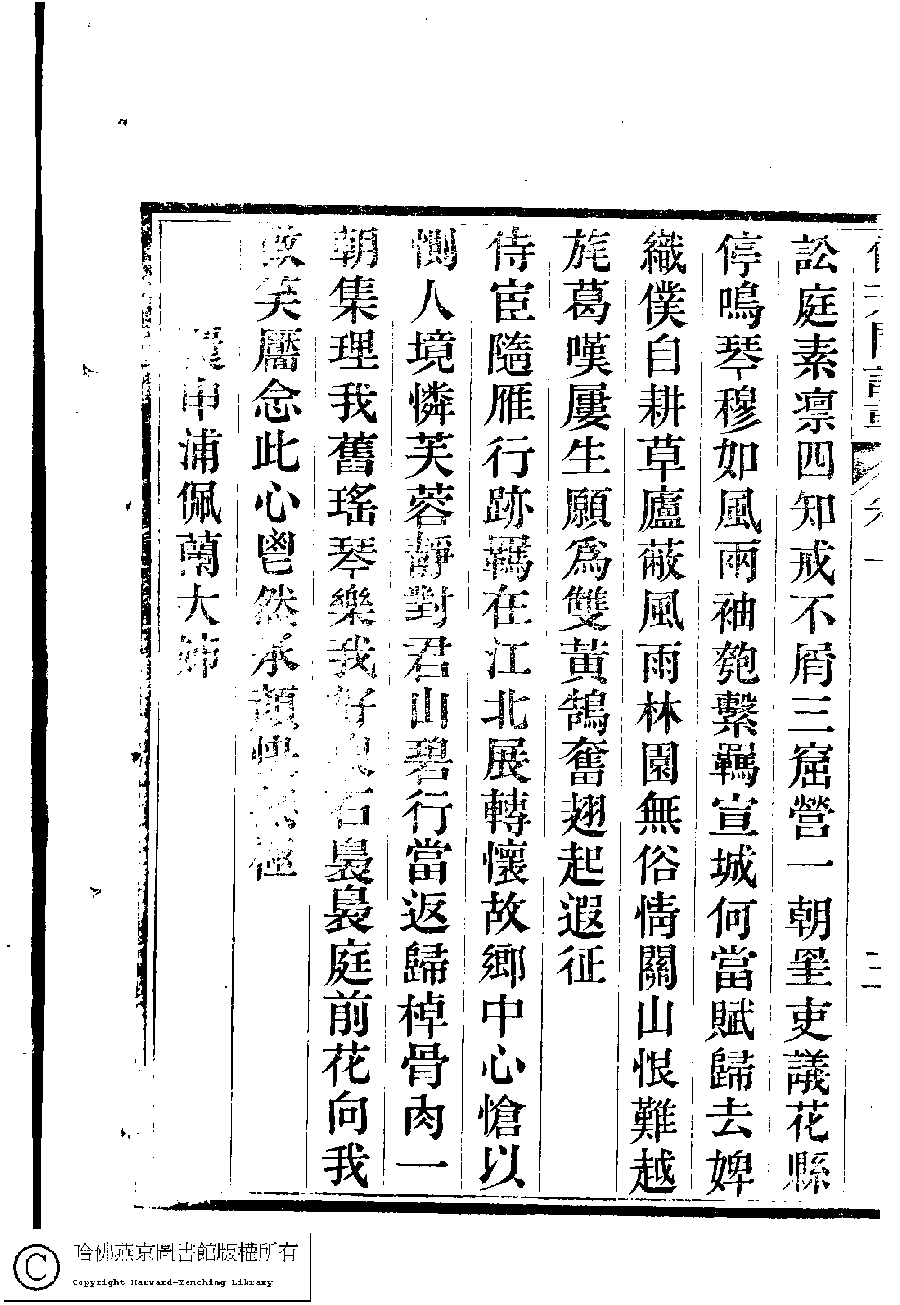 訟庭素凛四知戒不屑三窟營一朝罣吏議花縣
停鳴琴穆如風兩袖匏繫羈宣城何當賦歸去婢
織僕自耕草廬蔽風雨林園無俗情關山恨難越
旄葛嘆屢生願爲雙黃鵠奮翅起遐征
侍宦隨雁行跡羈在江北展轉懷故鄉中心愴以
惻人境憐芙蓉靜對君山碧行當返歸棹骨肉一
朝集理我舊瑤琴樂我好泉石裊裊庭前花向我
笑靨念此心鬯然承顏
申浦佩蘭大姊
二
哈佛燕京圖書館版權所有
Copyright Harvard-Yenching Library